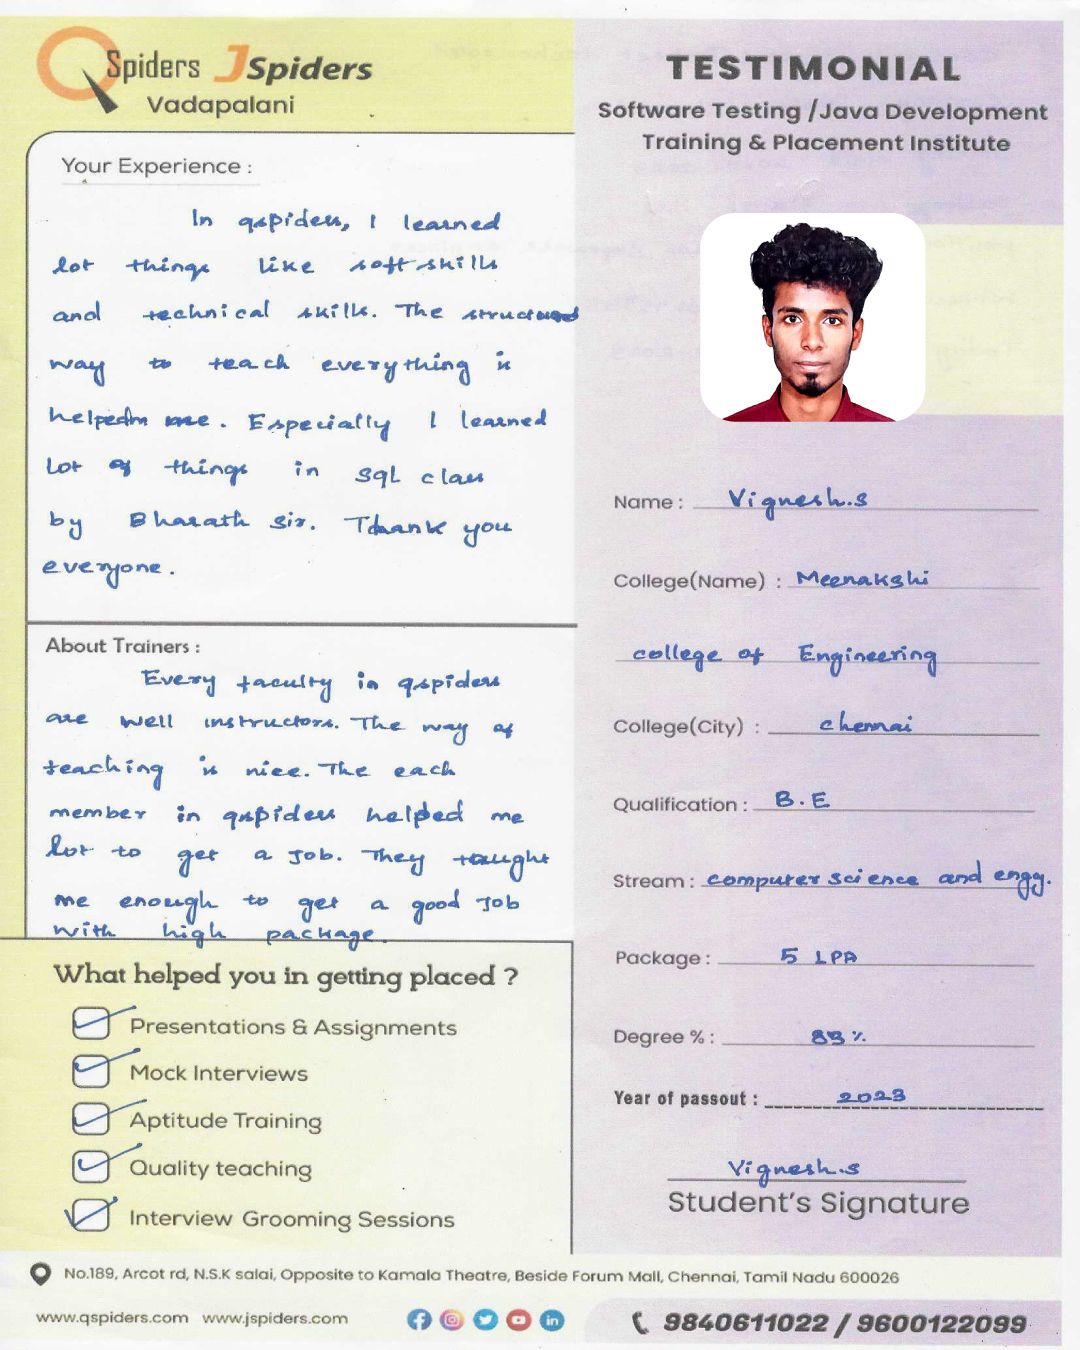 QSpiders JSpiders
Vadapalani
TESTIMONIAL
Software Testing /Java Development
Training & Placement Institute
Your Experience :
In qspiders, I learned
lot things like soft skills
and technical skills. The structured
way to teach everything is
helped me. Especially I learned
lot of things in SQL class
by Bharath Sir. Thank you
everyone.
About Trainers :
Every faculty in qspiders
are well instructors. The way of
teaching is nice. The each
member in qspiders helped me
lot to get a Job. They taught
me enough to get a good Job
with high package.
What helped you in getting placed ?
Presentations & Assignments
Mock Interviews
Aptitude Training
Quality teaching
Interview Grooming Sessions
Name : Vignesh.S
College(Name) : Meenakshi
college of Engineering
College(City) : chennai
Qualification : B.E
Stream : computer science and engg.
Package : 5 LPA
Degree % : 83 %
Year of passout : 2023
Vignesh.S
Student's Signature
No.189, Arcot rd, N.S.K salai, Opposite to Kamala Theatre, Beside Forum Mall, Chennai, Tamil Nadu 600026
www.qspiders.com www.jspiders.com
9840611022 / 9600122099